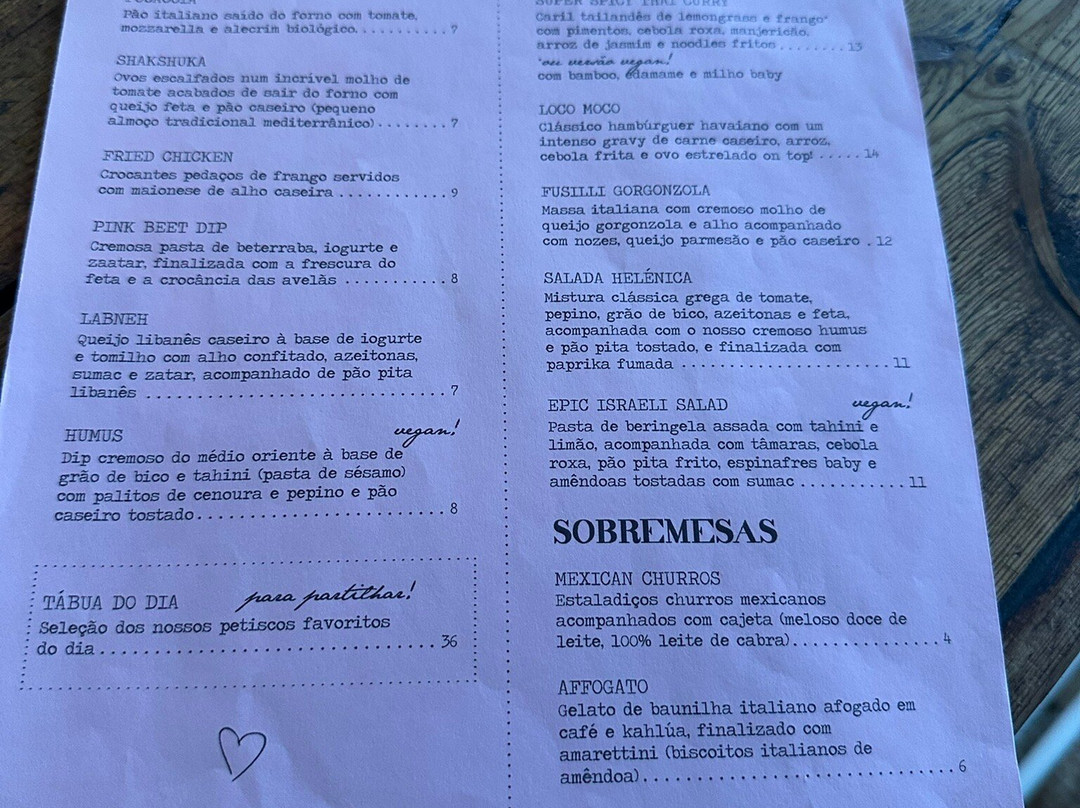 Pão italiano saído do forno com tomate,
mozzarella e alecrim biológico. . . . . . . . . . . 7
SHAKSHUKA
Ovos escalfados num incrível molho de
tomate acabados de sair do forno com
queijo feta e pão caseiro (pequeno
almoço tradicional mediterrânico) . . . . . . . . 7
FRIED CHICKEN
Crocantes pedaços de frango servidos
com maionese de alho caseira . . . . . . . . . . . . . 9
PINK BEET DIP
Cremosa pasta de beterraba, iogurte e
zaatar, finalizada com a frescura do
feta e a crocância das avelãs . . . . . . . . . . . 8
LABNEH
Queijo libanês caseiro à base de iogurte
e tomilho com alho confitado, azeitonas,
sumac e zatar, acompanhado de pão pita
libanês . . . . . . . . . . . . . . . . . . . . . . . . . . . . . . 7
HUMUS vegan!
Dip cremoso do médio oriente à base de
grão de bico e tahini (pasta de sésamo)
com palitos de cenoura e pepino e pão
caseiro tostado. . . . . . . . . . . . . . . . . . . . . . . . 8
TÁBUA DO DIA para partilhar!
Seleção dos nossos petiscos favoritos
do dia. . . . . . . . . . . . . . . . . . . . . . . . . . . . . . . . 36
SUPER SPICY THAI CURRY
Caril tailandês de lemongrass e frango*
com pimentos, cebola roxa, manjericão,
arroz de jasmim e noodles fritos . . . . . . . . 13
*ou versão vegan!
com bamboo, edamame e milho baby
LOCO MOCO
Clássico hambúrguer havaiano com um
intenso gravy de carne caseiro, arroz,
cebola frita e ovo estrelado on top! . . . . . 14
FUSILLI GORGONZOLA
Massa italiana com cremoso molho de
queijo gorgonzola e alho acompanhado
com nozes, queijo parmesão e pão caseiro . 12
SALADA HELÉNICA
Mistura clássica grega de tomate,
pepino, grão de bico, azeitonas e feta,
acompanhada com o nosso cremoso humus
e pão pita tostado, e finalizada com
paprika fumada . . . . . . . . . . . . . . . . . . . . . . 11
EPIC ISRAELI SALAD vegan!
Pasta de beringela assada com tahini e
limão, acompanhada com tâmaras, cebola
roxa, pão pita frito, espinafres baby e
amêndoas tostadas com sumac . . . . . . . . . . . 11
SOBREMESAS
MEXICAN CHURROS
Estaladiços churros mexicanos
acompanhados com cajeta (meloso doce de
leite, 100% leite de cabra). . . . . . . . . . . . . . . 4
AFFOGATO
Gelato de baunilha italiano afogado em
café e kahlúa, finalizado com
amarettini (biscoitos italianos de
amêndoa). . . . . . . . . . . . . . . . . . . . . . . . . . . . . 6